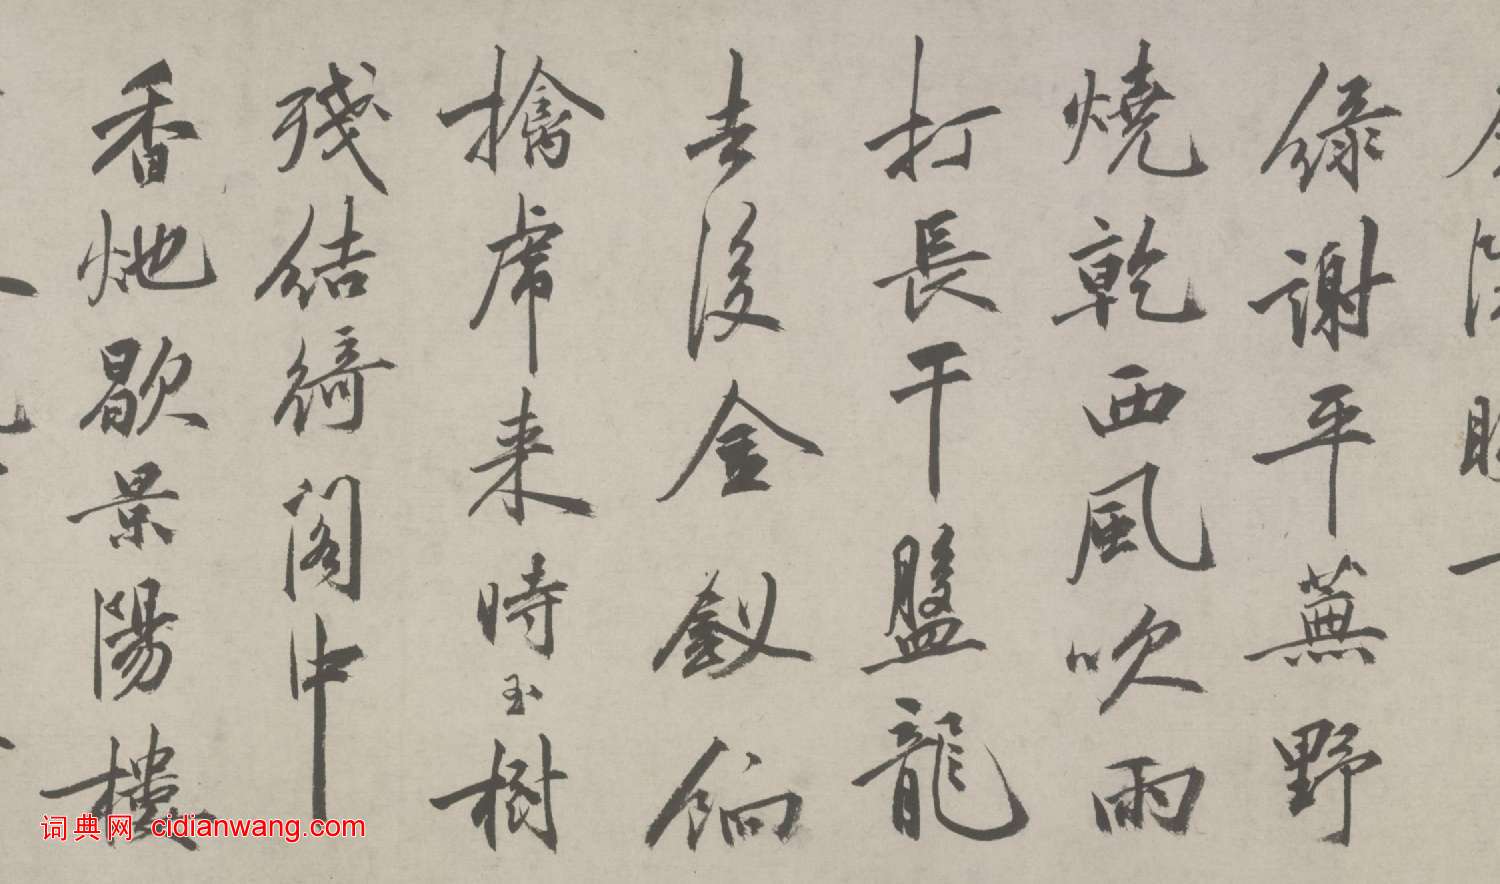 緑謝平蕪野
燒乾西風吹雨
打長干盤龍
去後金釵餉
擒虎来時玉樹
殘結綺閣中
香灺歇景陽樓
词典网 cidianwang.com